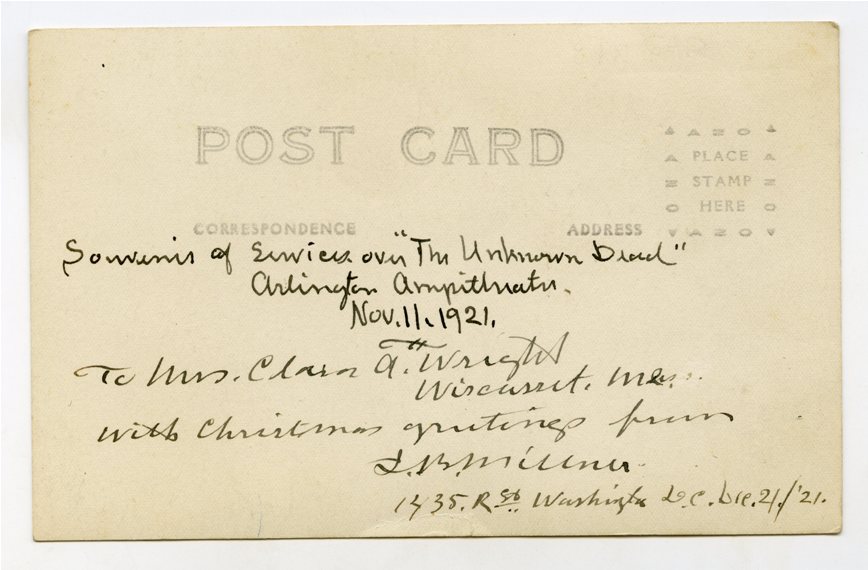 POST CARD
▲ A Z O ▲
PLACE
STAMP
HERE
▼ A Z O ▼
CORRESPONDENCE
ADDRESS
Souvenir of Services over "The Unknown Dead"
Arlington Ampitheater.
Nov. 11. 1921.
To Mrs. Clara A. Wright
Wiscasset. Me.
with Christmas greetings from
1435. R St. Washington D.C. Dec. 21/'21.